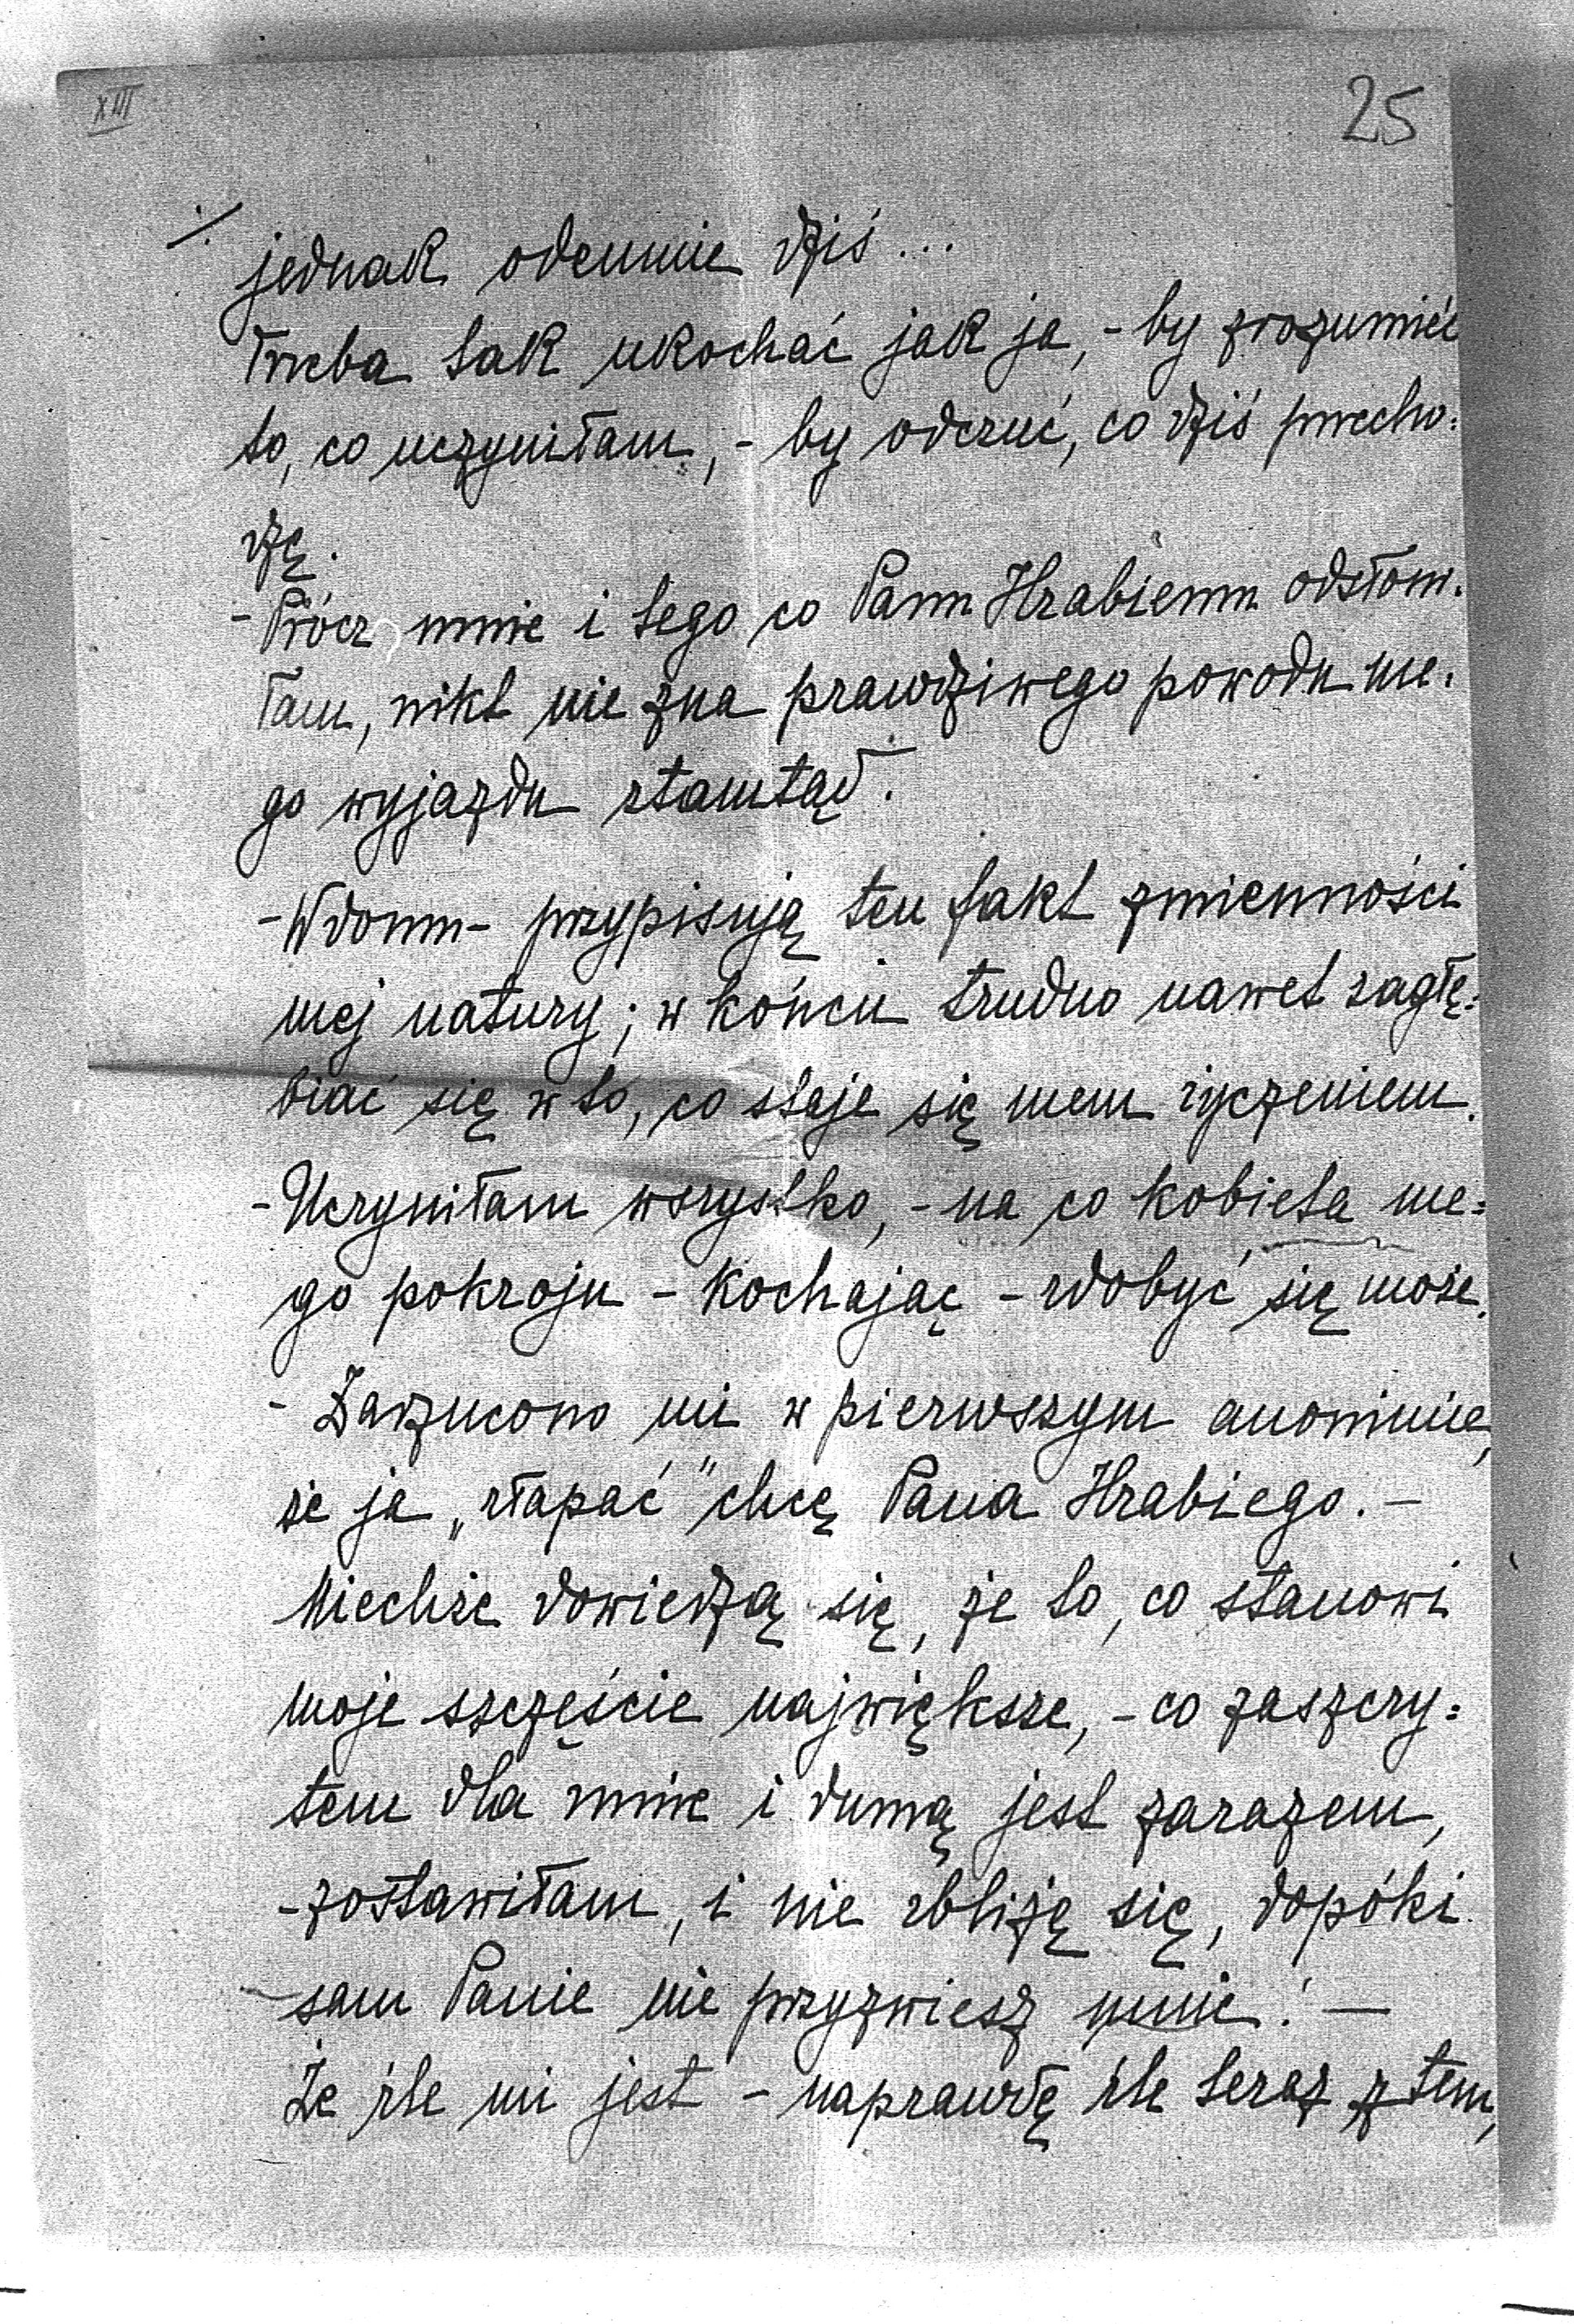 XIII
25
./.
jednak odemnie dziś...
Trzeba tak ukochać jak ja, - by zrozumieć
to, co uczyniłam, - by odczuć, co dziś przecho=
dzę.
- Prócz mnie i tego co Panu Hrabiemu odsłoni=
łam, nikt nie zna prawdziwego powodu me=
go wyjazdu stamtąd.
- W domu - przypisują ten fakt zmienności
mej natury; w końcu trudno nawet zagłę=
biać się w to, co staje się mem życzeniem.
- Uczyniłam wszystko, - na co kobieta me=
go pokroju - kochając - zdobyć się może.
- Zarzucono mi w pierwszym anonimie,
że ja „złapać" chcę Pana Hrabiego. -
Niechże dowiedzą się, że to, co stanowi
moje szczęście największe, - co zaszczy=
tem dla mnie i dumą jest zarazem,
- zostawiłam, i nie zbliżę się, dopóki
sam Panie nie przyzwiesz mnie! —
Że źle mi jest - naprawdę źle teraz z tem,